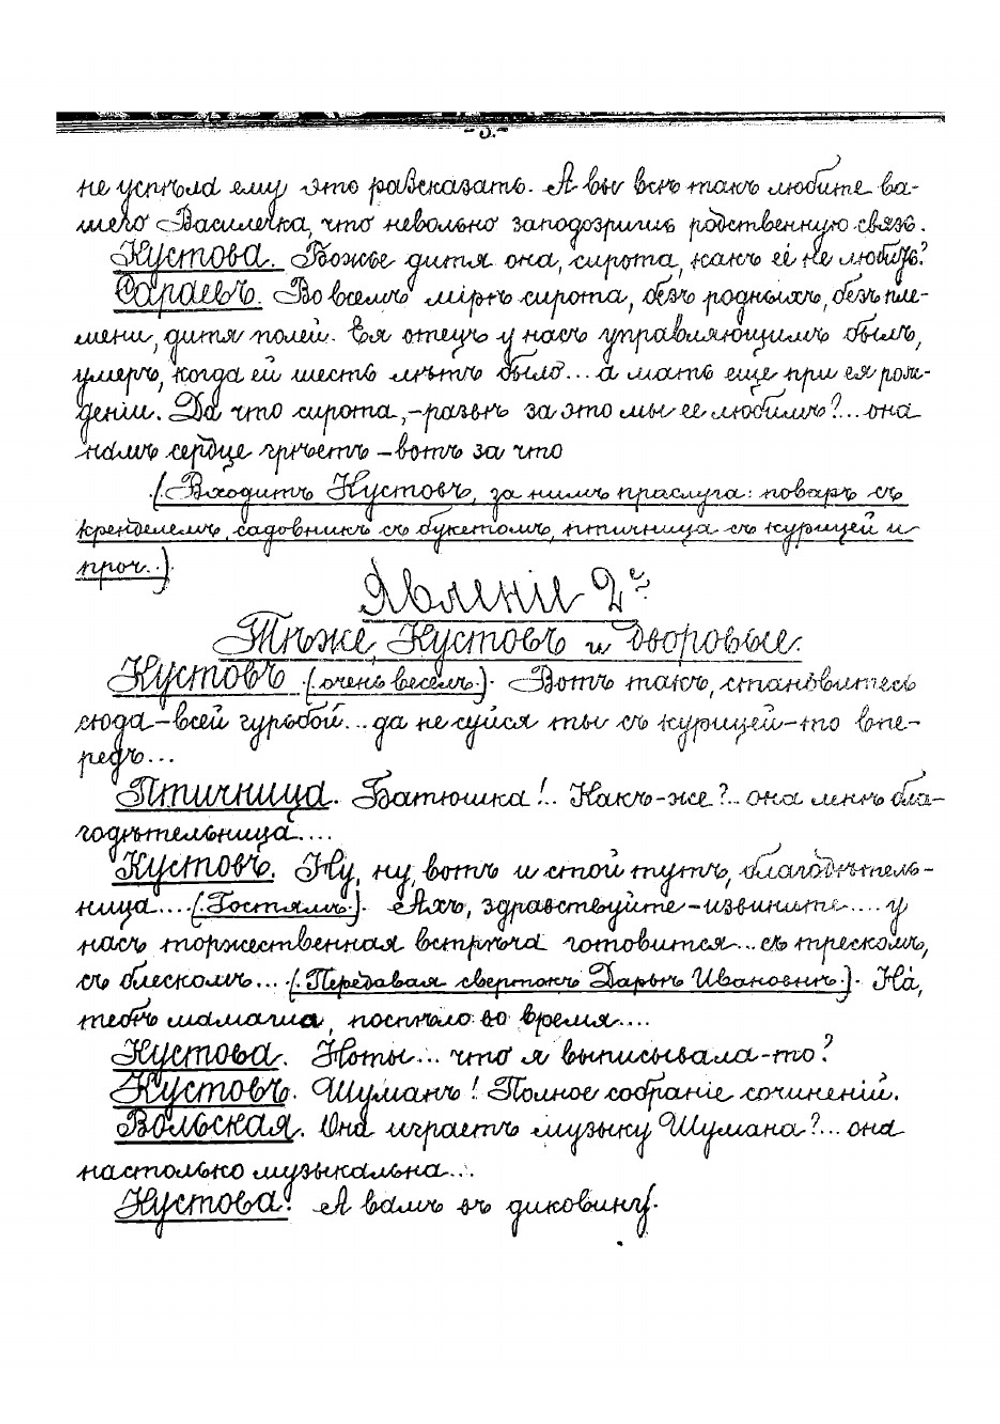 -5.-
не успѣла ему это разсказать. А вы всѣ такъ любите ва-
шего Василечка, что невольно заподозришь родственную связь.
Кустова. Божье дитя она, сирота, какъ её не любить?
Сараевъ. Во всемъ мірѣ сирота, безъ родныхъ, безъ пле-
мени, дитя полей. Ея отецъ у насъ управляющимъ былъ,
умеръ, когда ей шесть лѣтъ было... а мать еще при ея рож-
деніи. Да что сирота,-развѣ за это мы ее любимъ?... она
намъ сердце грѣетъ - вотъ за что
(Входитъ Кустовъ, за нимъ прислуга: поваръ съ
кренделемъ, садовникъ съ букетомъ, птичница съ курицей и
проч..)
Явленіе 2е
Тѣже, Кустовъ и дворовые.
Кустовъ (очень веселъ.). Вотъ такъ, становитесь
сюда-всей гурьбой... да не суйся ты съ курицей-то впе-
редъ...
Птичница. Батюшка!.. Какъ-же?.. она мнѣ бла-
годѣтельница....
Кустовъ. Ну, ну, вотъ и стой тутъ, благодѣтель-
ница.... (Гостямъ.). Ахъ, здравствуйте-извините.... у
насъ торжественная встрѣча готовится... съ трескомъ,
съ блескомъ... (Передавая свертокъ Дарьѣ Ивановнѣ.). На́,
тебѣ мамаша, поспѣло во время....
Кустова. Ноты... что я выписывала-то?
Кустовъ. Шуманъ! Полное собраніе сочиненій.
Вольская. Она играетъ музыку Шумана?... она
настолько музыкальна...
Кустова. А вамъ въ диковину.